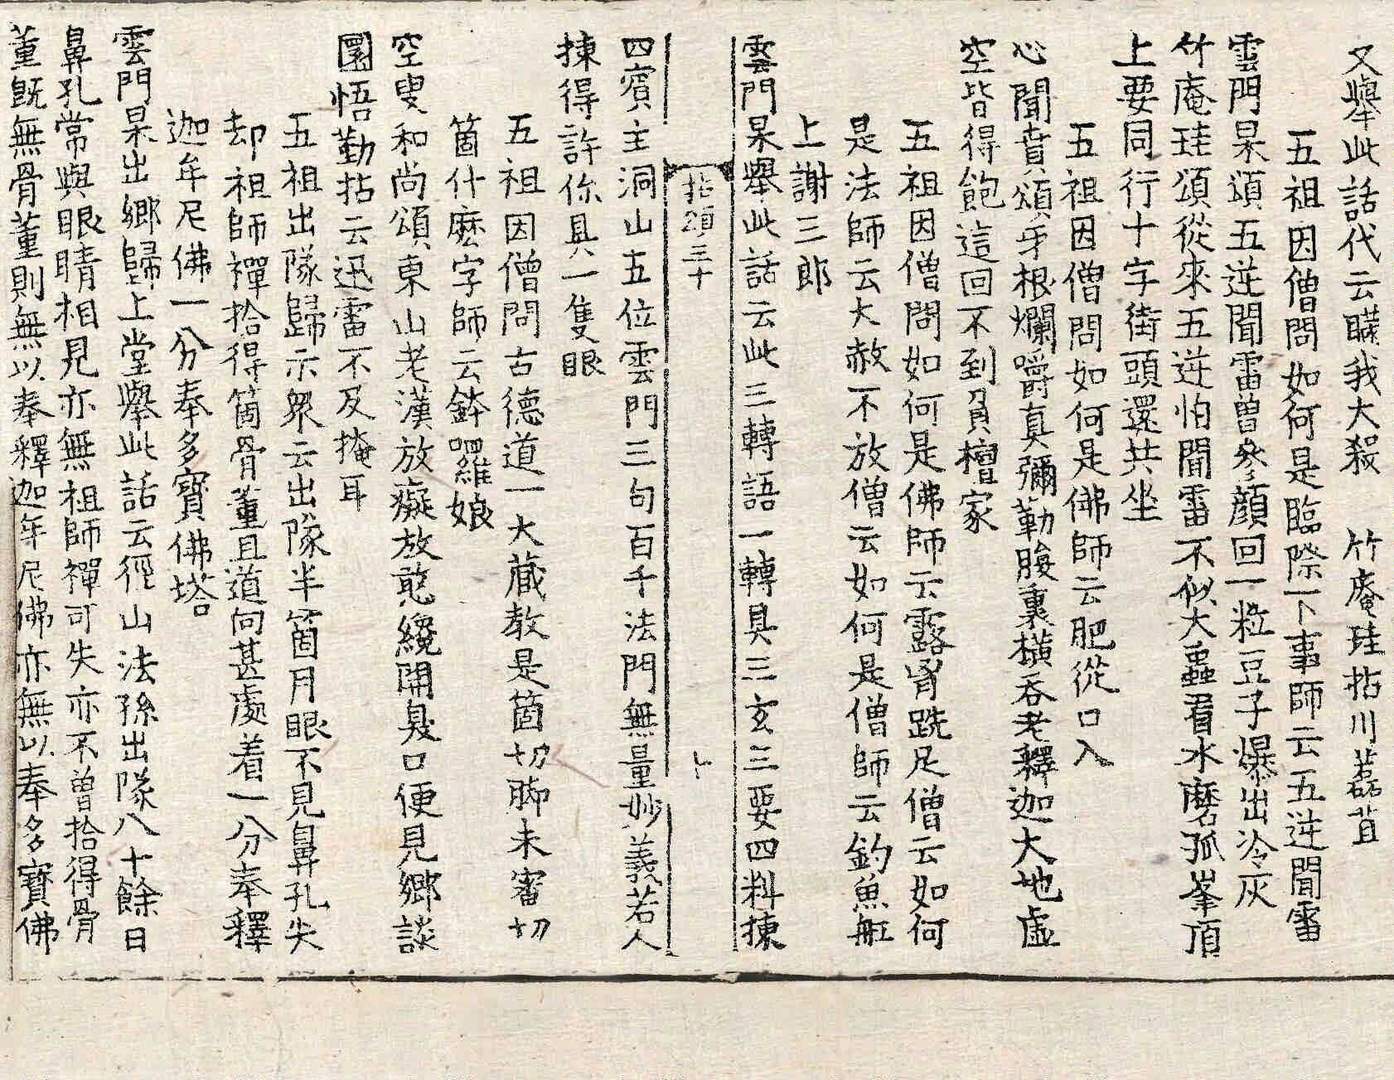 又舉此話代云賺我大殺 竹庵珪拈川藞苴
五祖因僧問如何是臨際下事師云五逆聞雷
雲門杲頌五逆聞雷曽參顏回一粒豆子爆出冷灰
竹庵珪頌從來五逆怕聞雷不似大蟲看水磨孤峯頂
上要同行十字街頭還共坐
五祖因僧問如何是佛師云肥從口入
心聞賁頌牙根爛嚼真彌勒腹裏橫吞老釋迦大地虛
空皆得飽這回不到負檀家
五祖因僧問如何是佛師云露胷跣足僧云如何
是法師云大赦不放僧云如何是僧師云釣魚舡
上謝三郎
雲門杲舉此話云此三轉語一轉具三玄三要四料揀
拈頌三十 卜
四賓主洞山五位雲門三句百千法門無量妙義若人
揀得許你具一隻眼
五祖因僧問古德道一大藏教是箇切脚未審切
箇什麽字師云鉢囉娘
空叟和尚頌東山老漢放癡放憨纔開臭口便見鄉談
圜悟勤拈云迅雷不及掩耳
五祖出隊歸示衆云出隊半箇月眼不見鼻孔失
却祖師禪拾得箇骨董且道向甚處着一分奉釋
迦牟尼佛一分奉多寶佛塔
雲門杲出鄉歸上堂舉此話云徑山法孫出隊八十餘日
鼻孔常與眼睛相見亦無祖師禪可失亦不曽拾得骨
董旣無骨董則無以奉釋迦牟尼佛亦無以奉多寶佛